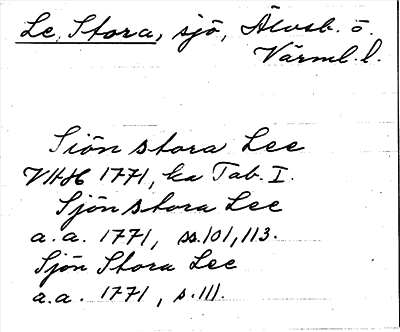 Le, Stora, sjö, Älvsb. o.
Värml. l.
Siön stora Lee
VAH 1771, ka Tab. I.
Sjön stora Lee
a.a. 1771, ss. 101, 113.
Sjön Stora Lee
a.a. 1771, s. 111.